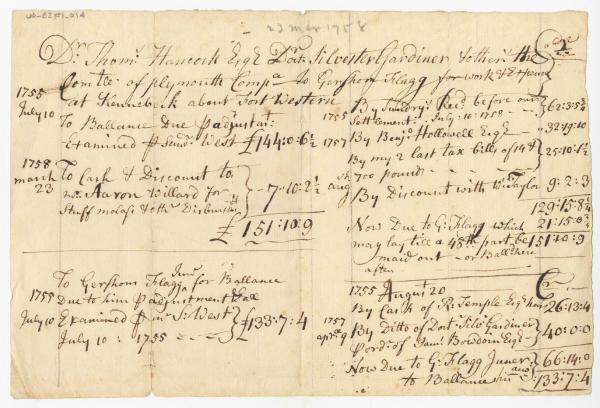 UD-62F1-014
23 mar 1758
2
Dr. Thoms. Hancock Esqr. Doct. Silvester Gardiner & other the
Comtte. of plymouth Compa. to Gershom Flagg for work & Expence
at Kennebeck about Fort Western
1755
July 10
To Ballance Due p adjustmt.
Examined p Saml. West £144:0:6½
1758
march
23
To Cash & Discount to
mr. Aaron Willard for
Stuff molas: & othr. Disbursmts
7-10-2½
£151:10:9
To Gershom Flagg Junr. for Ballance
1755
Due to him p adjustment &
July 10
Examined p mr. S: West
£133:7:4
July 10: 1755
1755
By Sundrys. Recd. before our
Settlement. July: 10: 1755
62:3:5½
1757
By Benjo. Hallowell Esqr.
32:19:10
By my 2 last tax bills of
700 pounds
25:10:1½
aug
By Discount with Wm. Taylor
9:2:3
129:15:8¼
Now Due to G: Flagg which
21:15:0¾
may lay till a 45th part be
151:10:9
maid out or Ballance
after
1755 August 20
Cr
By Cash of R: Temple Esqr.
26:13:4
1757
apr: 9
By Ditto of Doct. Silvr. Gardiner
pord: of Jams. Bowdoin Esqr.
40:0:0
Now Due to G: Flagg Juner
66:14:0
to Ballance his
133:7:4